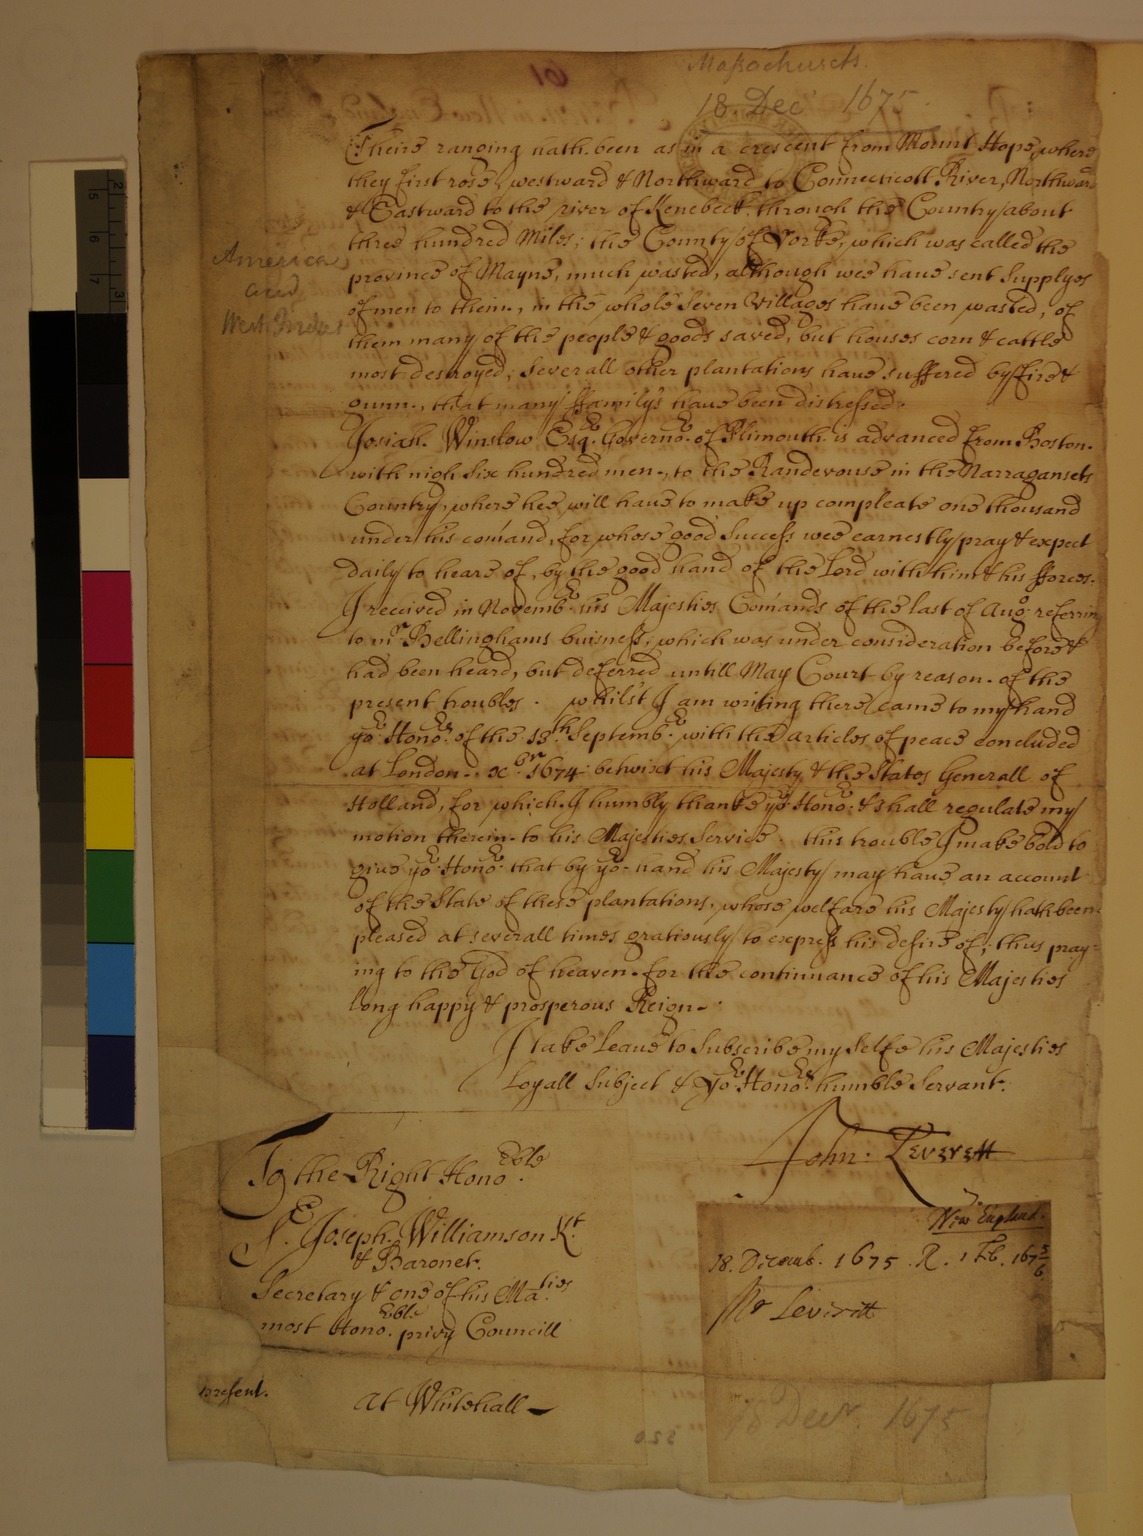 Massachusets.
18 Dec 1675
Theire ranging hath been as in a crescent from Mount Hope, where
they first rose, westward & Northward to Connecticott River, Northward
& Eastward to the river of Kenebeck through the Country about
three hundred Miles; the County of Yorke, which was called the
province of Mayne, much wasted, although wee have sent Supplyes
of men to them, in the whole Seven Villages have been wasted, of
them many of the people & goods saved, but houses corn & cattle
most destroyed; Severall other plantations have suffered by ffire &
gunn, that many ffamily's have been distressed.
America
and
West Indies
Josiah Winslow Esqr. Governor. of Plimouth is advanced from Boston
with nigh Six hundred men, to the Randevouse in the Narragansets
Country, where hee will have to make up compleate one thousand
under his comand, for whose good Success wee earnestly pray & expect
daily to heare of, by the good hand of the Lord with him & his fforces.
I received in Novembr. his Majesties Comands of the last of Augo. referring
to mr. Bellinghams buisness; which was under consideration before &
had been heard, but deferred untill May Court by reason of the
present troubles. whilst I am writing there came to my hand
yor. Honors. of the 13th Septembr. with the articles of peace concluded
at London xbr. 1674 betwixt his Majesty & the States Generall of
Holland, for which I humbly thanke yor. Honor. & Shall regulate my
motion therein to his Majesties Service. this trouble I make bold to
give yor. Honor. that by yor. hand his Majesty may have an account
of the State of these plantations, whose welfare his Majesty hath been
pleased at severall times gratiously to express his desire of; thus pray=
ing to the God of heaven for the continuance of his Majesties
long happy & prosperous Reign.
I take Leave to Subscribe my Selfe his Majesties
Loyall Subject & Yor. Honors. humble Servant.
John Leverett
To the Right Honoble.
Sr. Joseph Williamson Kt.
& Baronet.
Secretary & one of his Maties.
most Honoble. privy Councill
present.
At Whitehall
New England.
18. Decemb. 1675. R. 1 Feb. 1675/6
Mr Leverett
18 Decr. 1675